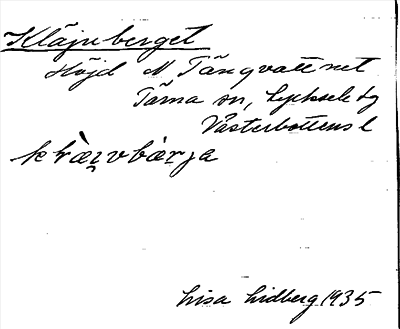 Kläjnberget
Höjd N Tängvattnet
Tärna sn, Lycksele dg
Västerbottens l
Lisa Lidberg 1935